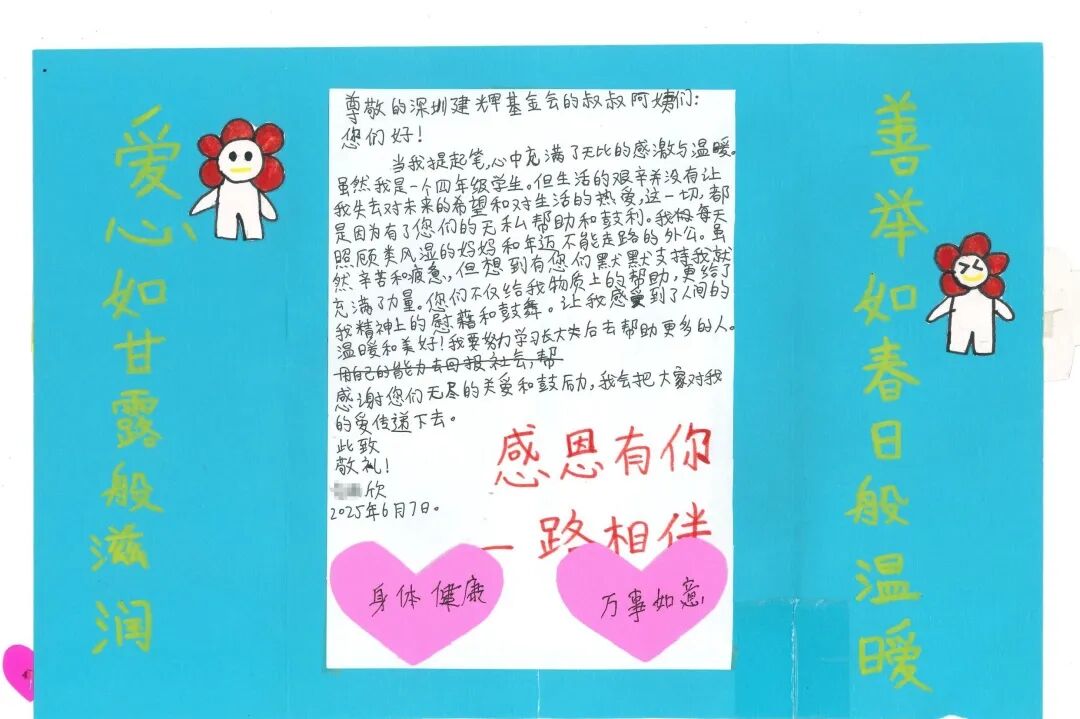 爱心如甘露般滋润
尊敬的深圳建辉基金会的叔叔阿姨们：
您们好！
当我提起笔，心中充满了无比的感激与温暖。
虽然我是一个四年级学生。但生活的艰辛并没有让
我失去对未来的希望和对生活的热爱，这一切，都
是因为有了您们的无私帮助和鼓利。我每天
照顾类风湿的妈妈和年迈不能走路的外公。虽
然辛苦和疲惫，但想到有您们默默支持我就
充满了力量。您们不仅给我物质上的帮助，更给了
我精神上的慰藉和鼓舞。让我感受到了人间的
温暖和美好！我要努力学习长大以后去帮助更多的人。
用自己的能力去回报社会，帮
感谢您们无尽的关爱和鼓励，我会把大家对我
的爱传递下去。
此致
敬礼！
欣
2025年6月7日。
感恩有你
一路相伴
身体健康
万事如意
善举如春日般温暖